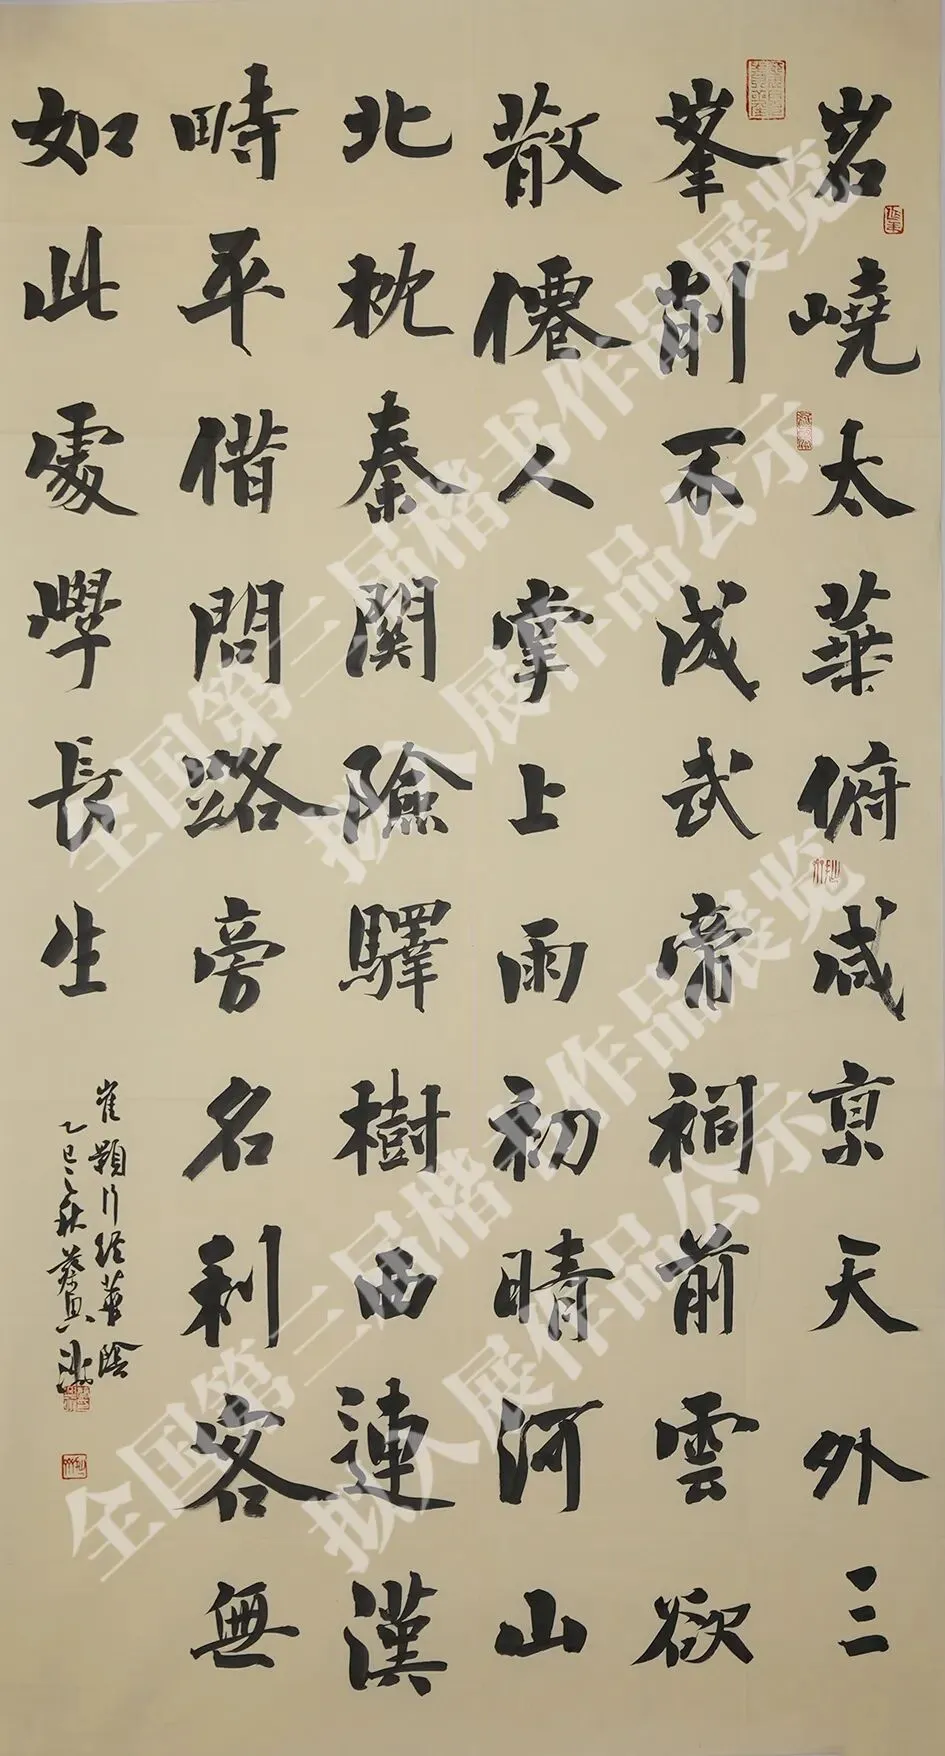 岧嶢太華俯咸京天外三
峯削不成武帝祠前雲欲
散僊人掌上雨初晴河山
北枕秦關險驛樹西連漢
畤平借問路旁名利客無
如此處學長生
崔顥行經華陰
乙巳秋蔡
全国第三届楷书作品展览
拟入展作品公示
全国第三届楷书作品展览
拟入展作品公示